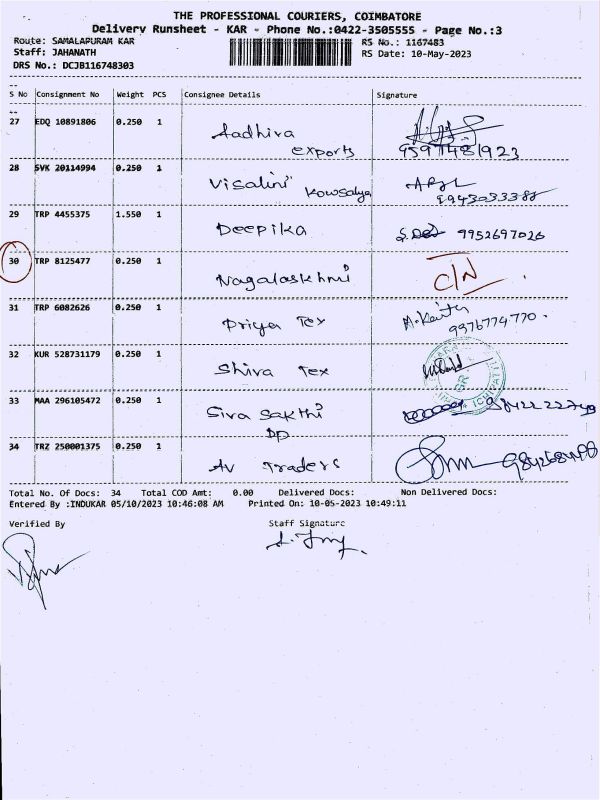 THE PROFESSIONAL COURIERS, COIMBATORE
Delivery Runsheet - KAR - Phone No.:0422-3505555 - Page No.:3
Route: SAMALAPURAM KAR
RS No.: 1167483
Staff: JAHANATH
RS Date: 10-May-2023
DRS No.: DCJB116748303
S No Consignment No Weight PCS Consignee Details Signature
27 EDQ 10891806 0.250 1 Aadhira exports
28 SVK 20114994 0.250 1 Visalini Kowsalya
29 TRP 4455375 1.550 1 Deepika 9952697026
30 TRP 8125477 0.250 1 Nagalaskhmi C/N
31 TRP 6082626 0.250 1 Priya Tex 9976774770.
32 KUR 528731179 0.250 1 Shiva Tex
33 MAA 296105472 0.250 1 Siva Sakthi
DD
34 TRZ 250001375 0.250 1 AV Traders
Total No. Of Docs: 34 Total COD Amt: 0.00 Delivered Docs: Non Delivered Docs:
Entered By :INDUKAR 05/10/2023 10:46:08 AM Printed On: 10-05-2023 10:49:11
Verified By Staff Signature